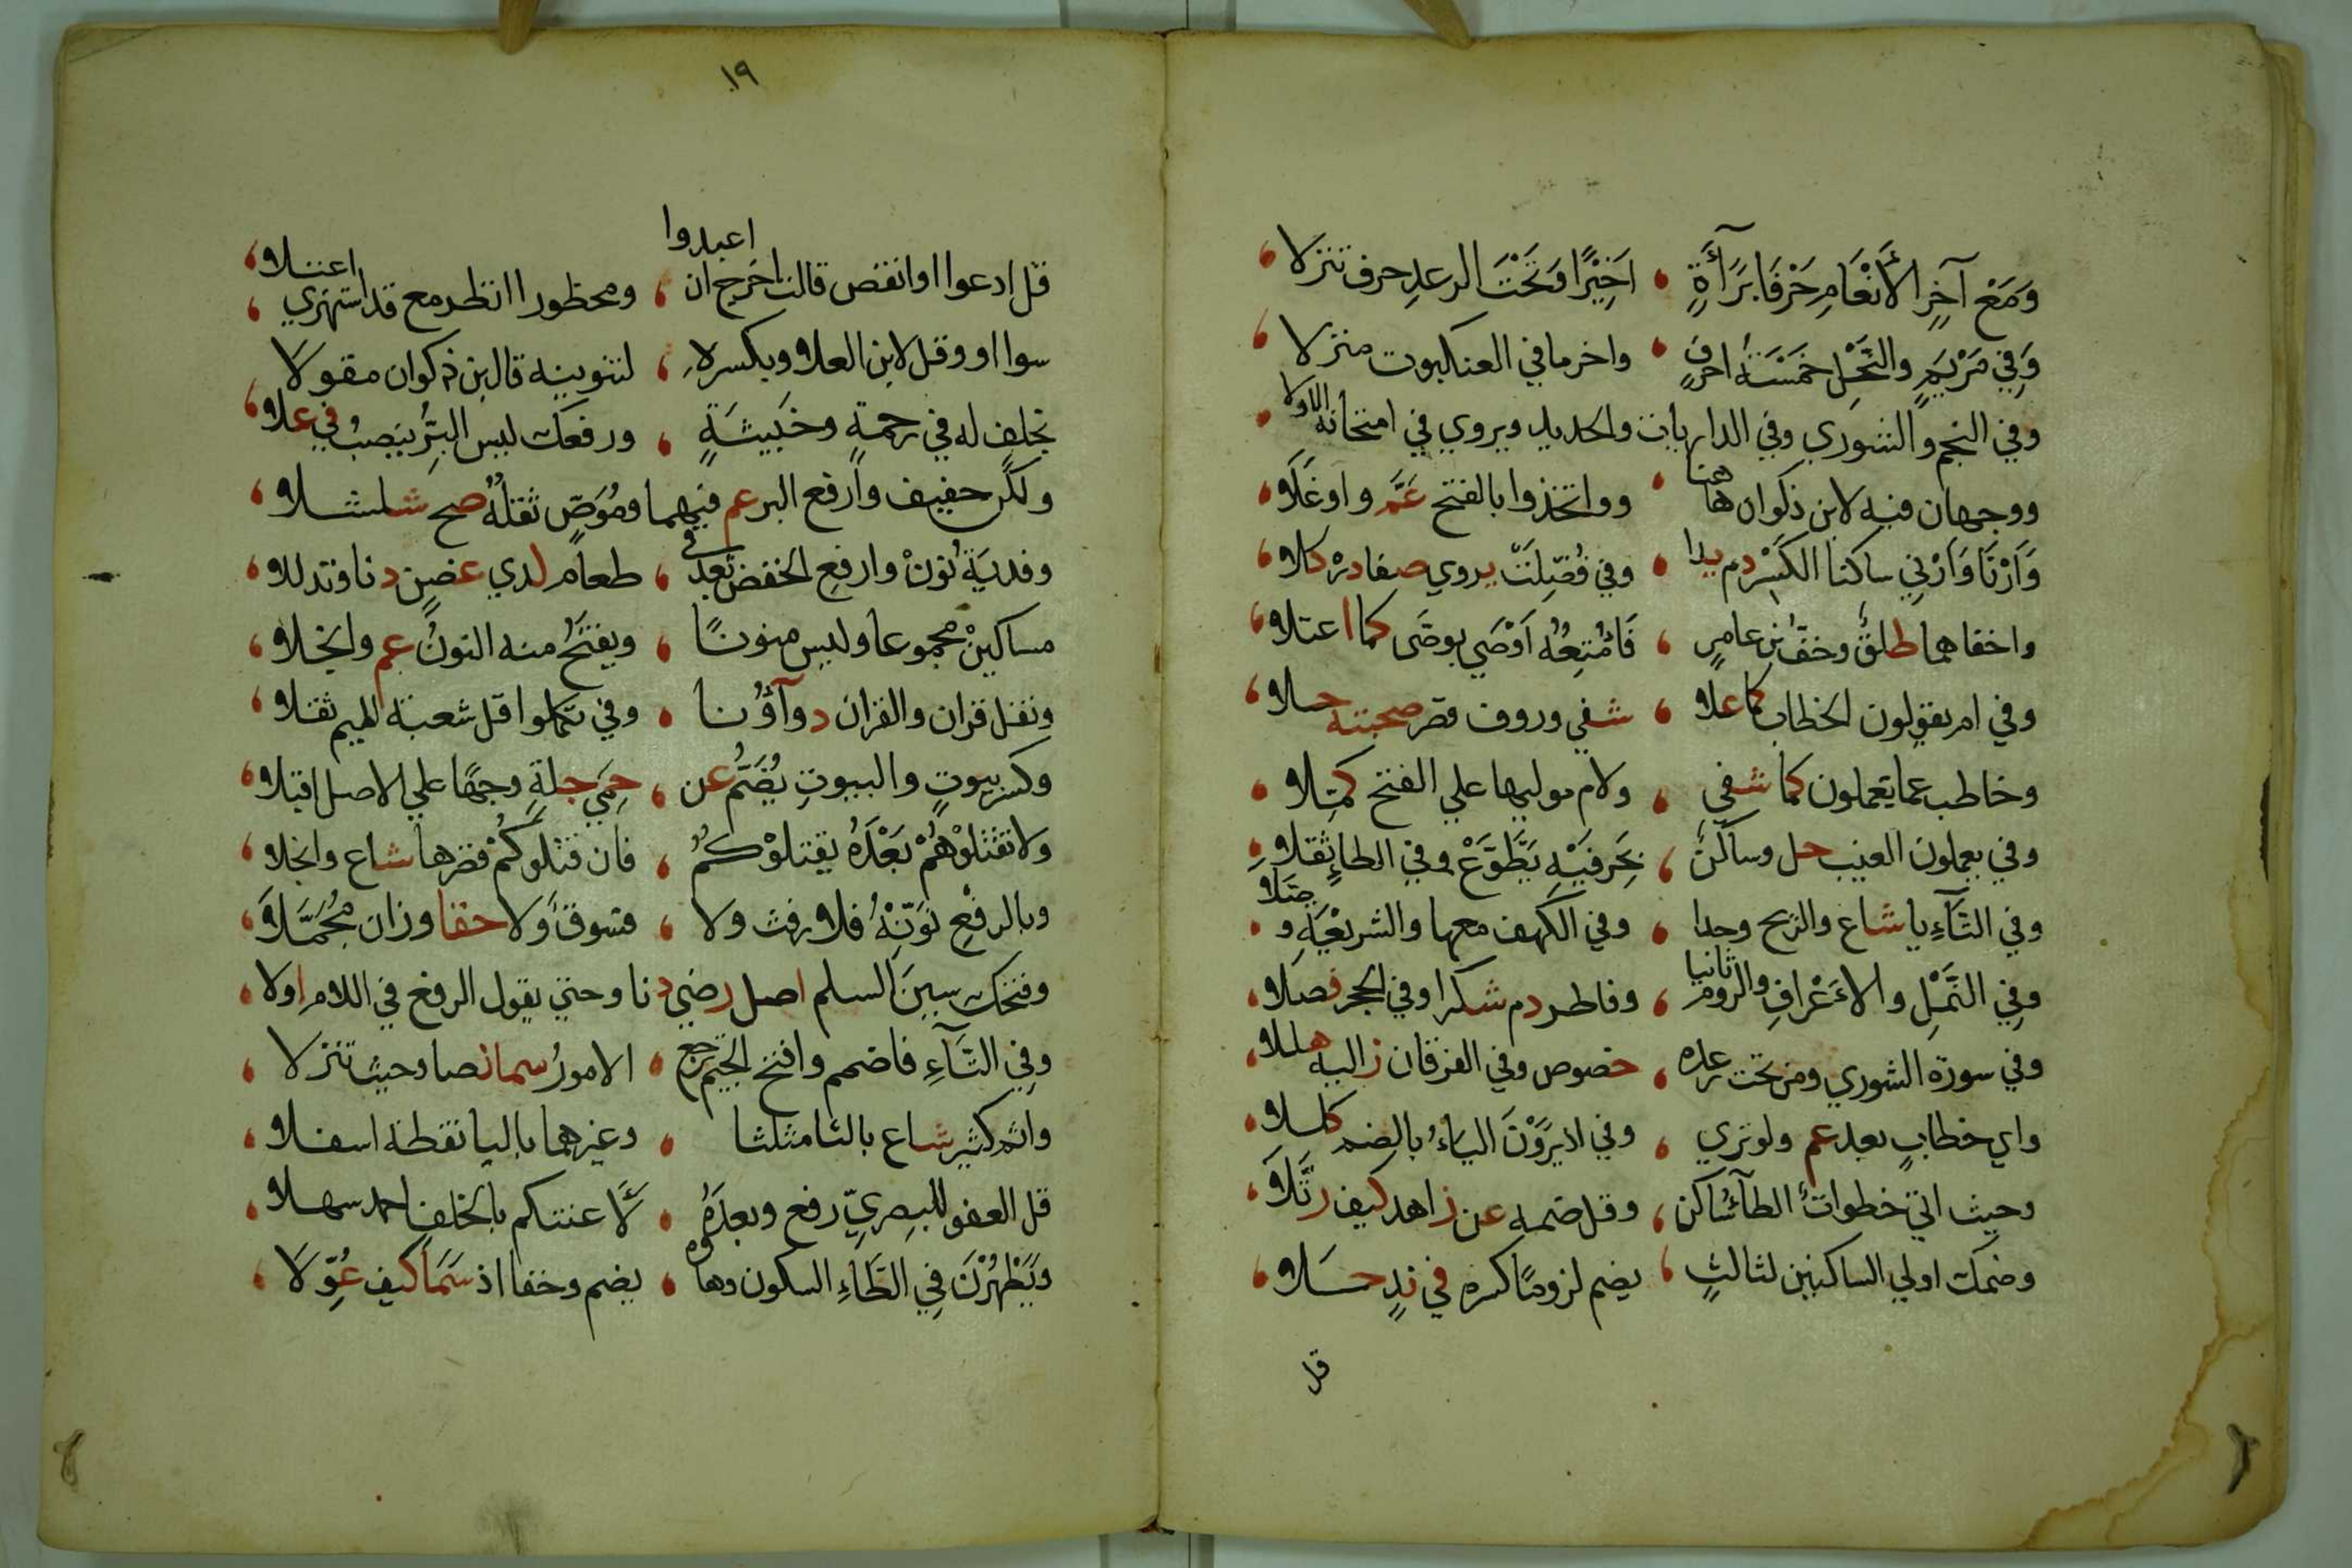 وَمَعْ آخِرِ الأَنْعَامِ حَرْفَا بَرَآءَةٍ ، اَخِيْرًا وَتَحْتَ الرعدِ حرف تنزلا ،
وَفِي مَرْيَمٍ والنَّحْلِ خَمْسَةُ احرفٍ ، واخر ما في العنكبوت منزلا ،
وفي النجم والشوري وفي الذاريات والحديد ويروي في امتحانه الاولا ،
ووجهان فيه لابن ذكوان هاهنا ، وواتخذوا بالفتح عَمَّ واوغَلَا ،
وَاَرْنَا وَاَرْنِي ساكنا الكَسْرِ دم يدا ، وفي فُصِّلِتْ يروي صفا درْ كلا ،
واخفاهما طلقٌ وخفُّ بْنِ عامرٍ ، فَامْتِعُهُ اَوْصَي بوصَّى كما اعتلا ،
وفي ام يقولون الخطاب كما علا ، شفي وروف قصر صحبته حلا ،
وخاطب عما يعملون كما شفي ، ولام موليها علي الفتح كملا ،
وفي يعملون الغيب حل وساكنٌ ، بِحَرفَيْهِ يَطَّوَّعْ وفي الطاءِ ثقلا ،
وفي التَّآءِ يا شاع والريح وحدا ، وفي الكهف معها والشريعَةِ وصلا ،
وفِي النَّمْلِ والاَعْرافِ والروم ثانيا ، وفاطر دم شكرا وفي الحجر فصلا ،
وفي سورة الشوري ومن تحت رعده ، خصوص وفي الفرقان زاليه هللا ،
واي خطابٍ بعد عم ولوتري ، وفي اذ يَرَوْنَ الياءُ بالضم كللا ،
وحيث اتي خطواتٌ الطآءُ ساكن ، وقل ضمه عن زاهد كيف رتَّلَا ،
وضمك اولي الساكنين لثالثٍ ، يضم لزومًا كسره في ندٍ حَلا ،
قل
١٩
قل ادعوا اوانقص قالت اخرج ان اعبدوا ، ومحظورا انظر مع قد استهزي اعتلا ،
سوا او وقل لابن العلا وبكسره ، لتنوينه قال بن ذكوان مقولا ،
بخلف له في رحمةٍ وخَبيثَةٍ ، ورفعك ليس البِرُّ ينصبُ في علا ،
ولكن خفيف وارفع البر عم فيهما وموَصٍّ ثقلهُ صح شلشلا ،
وفديَةُ نَوِّنْ وارفعِ الخفض بعدُ في ، طعامٍ لدي غصن دنا وتدللا ،
مساكينْ مجموعا وليس منونًا ، ويفتَحُ منه النونُ عم وانجلا ،
ونقل قران والقران دوآؤُنا ، وفي تكملوا قل شعبة الميم ثقلا ،
وكسر بيوتٍ والبيوتِ يُضَمُّ عن ، حِمَي جلةٍ وجهًا علي الاصل اقبلا ،
ولا تقتلوْهُمْ بَعْدَهُ يقتلوْكُمُ ، فان قتلوكُمْ قصرها شاع وانجلا ،
وبالرفعِ نَوِّنْهُ فلا رفث ولا ، فسوقٌ وَلا حقا وزان مُجَمَّلَا ،
وفتحك سينَ السلم اصل رضي دنا وحتي يقول الرفع في اللام اولا ،
وفِي التَّآءِ فاضمم وافتح الجيم ترجع ، الامورُ سما نصا وحيث تنزلا ،
واثم كثير شاع بالثا مثلثا ، وغيرهما بالبا نقطة اسفلا ،
قل العفو للبصرِيِّ رفع وبعدَهُ ، لَأَعنتكم بالخلف احمد سهلا ،
وَيَطْهُرْنَ فِي الطَّاءِ السكون وهاوه ، يضم وخفا اذ سَمَا كيف عُوِّلَا ،